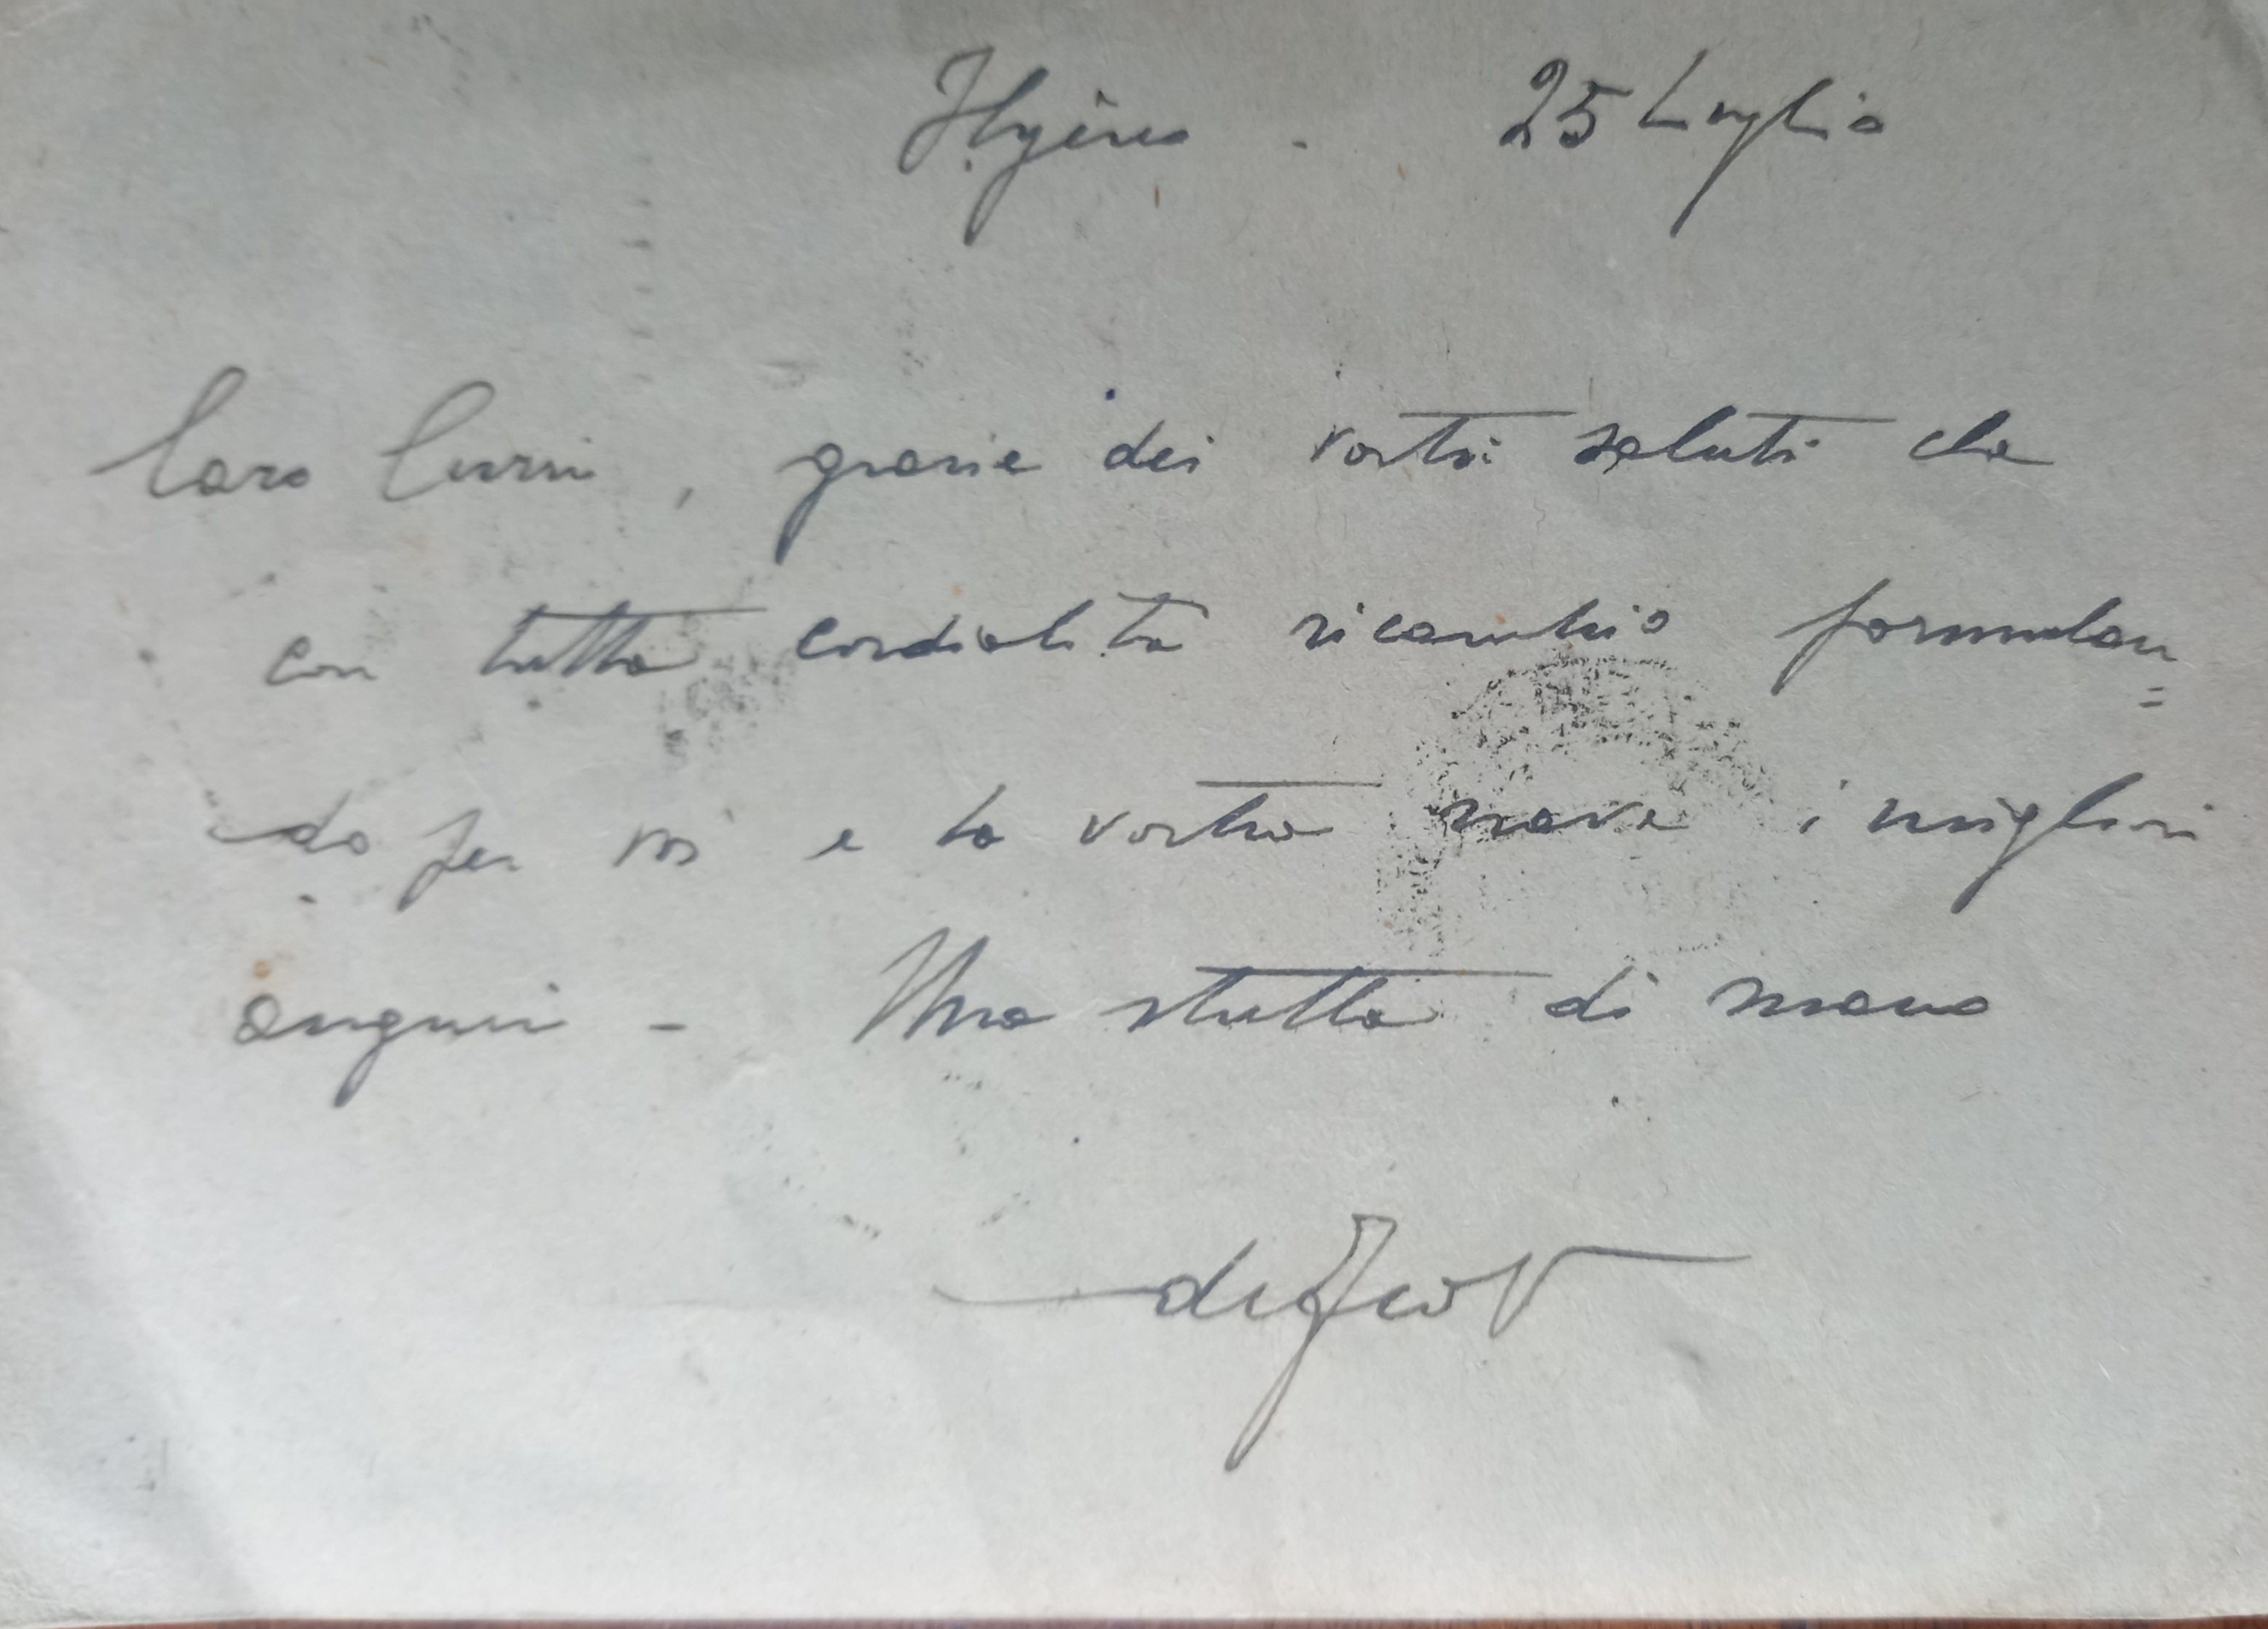 Hyères . 25 Luglio
Caro Curri, grazie dei vostri saluti che
con tutta cordialità ricambio formulan=
do per voi e la vostra nave i migliori
auguri - Una stretta di mano